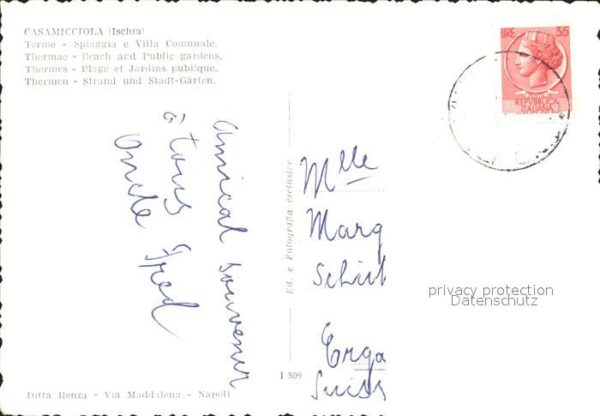 CASAMICCIOLA (Ischia)
Terme - Spiaggia e Villa Comunale.
Thermae - Beach and Public gardens.
Thermes - Plage et Jardins publique.
Thermen - Strand und Stadt-Gärten.
LIRE 35
POSTE
REPVBBLICA
ITALIANA
Amical souvenir
à tous
Oncle Fred
Ed. e Fotografia esclusive
Mlle
Marg
Schist
Erga
Suiss
privacy protection
Datenschutz
1 509
Ditta Renza - Via Maddalena - Napoli